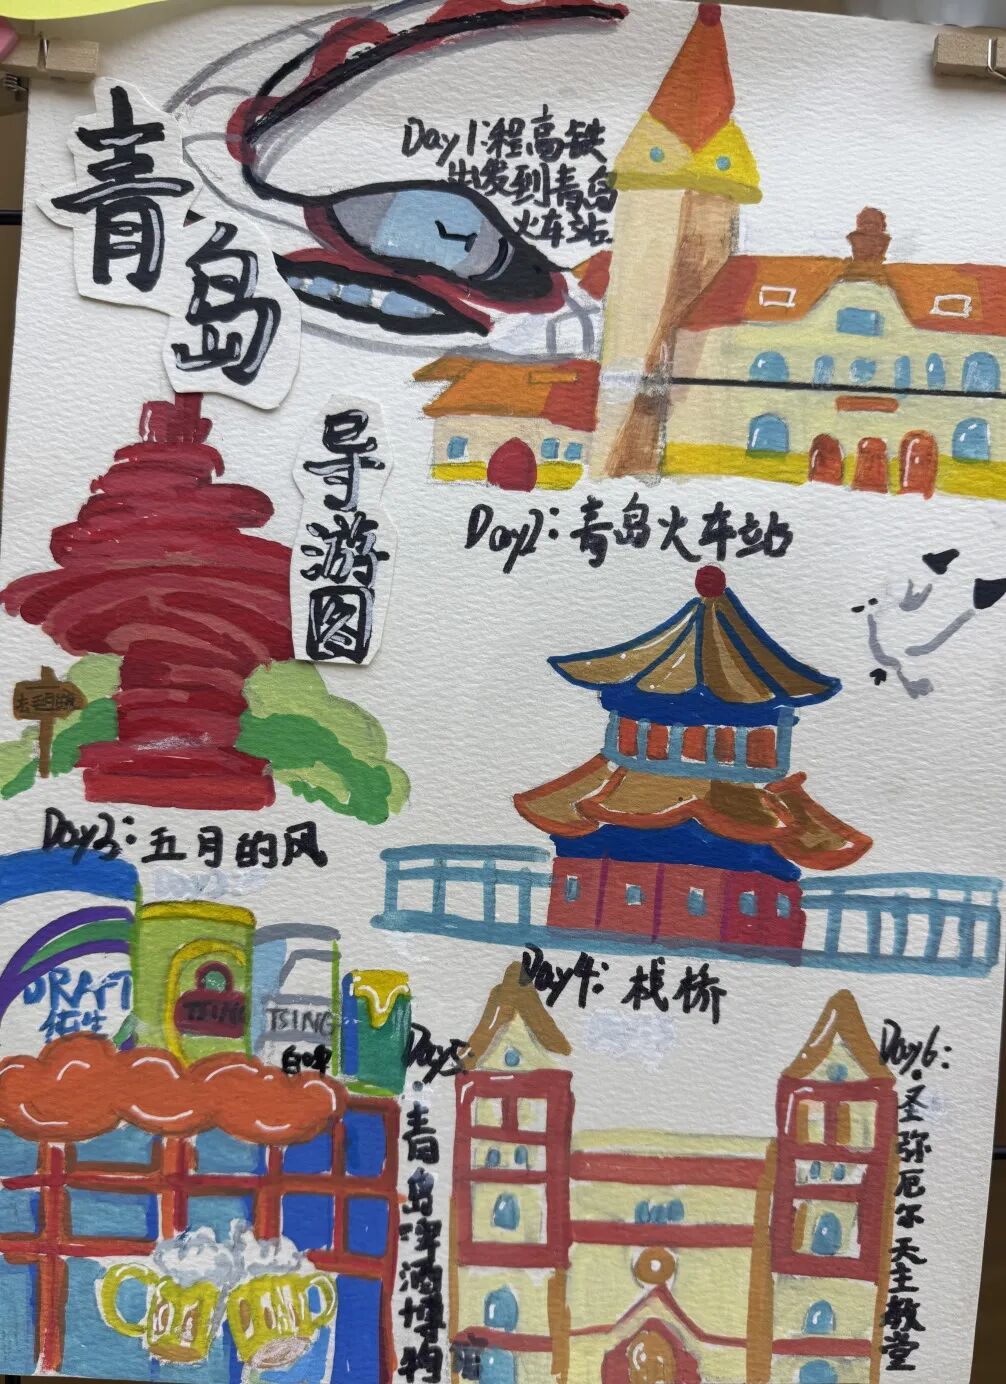 青岛
导游图
Day1:程高铁
出发到青岛
火车站
Day2:青岛火车站
Day3:五月的风
Day4:栈桥
DRAFT
TSING
TSING
Day5:
青岛啤酒博物馆
Day6:
圣弥厄尔天主教堂